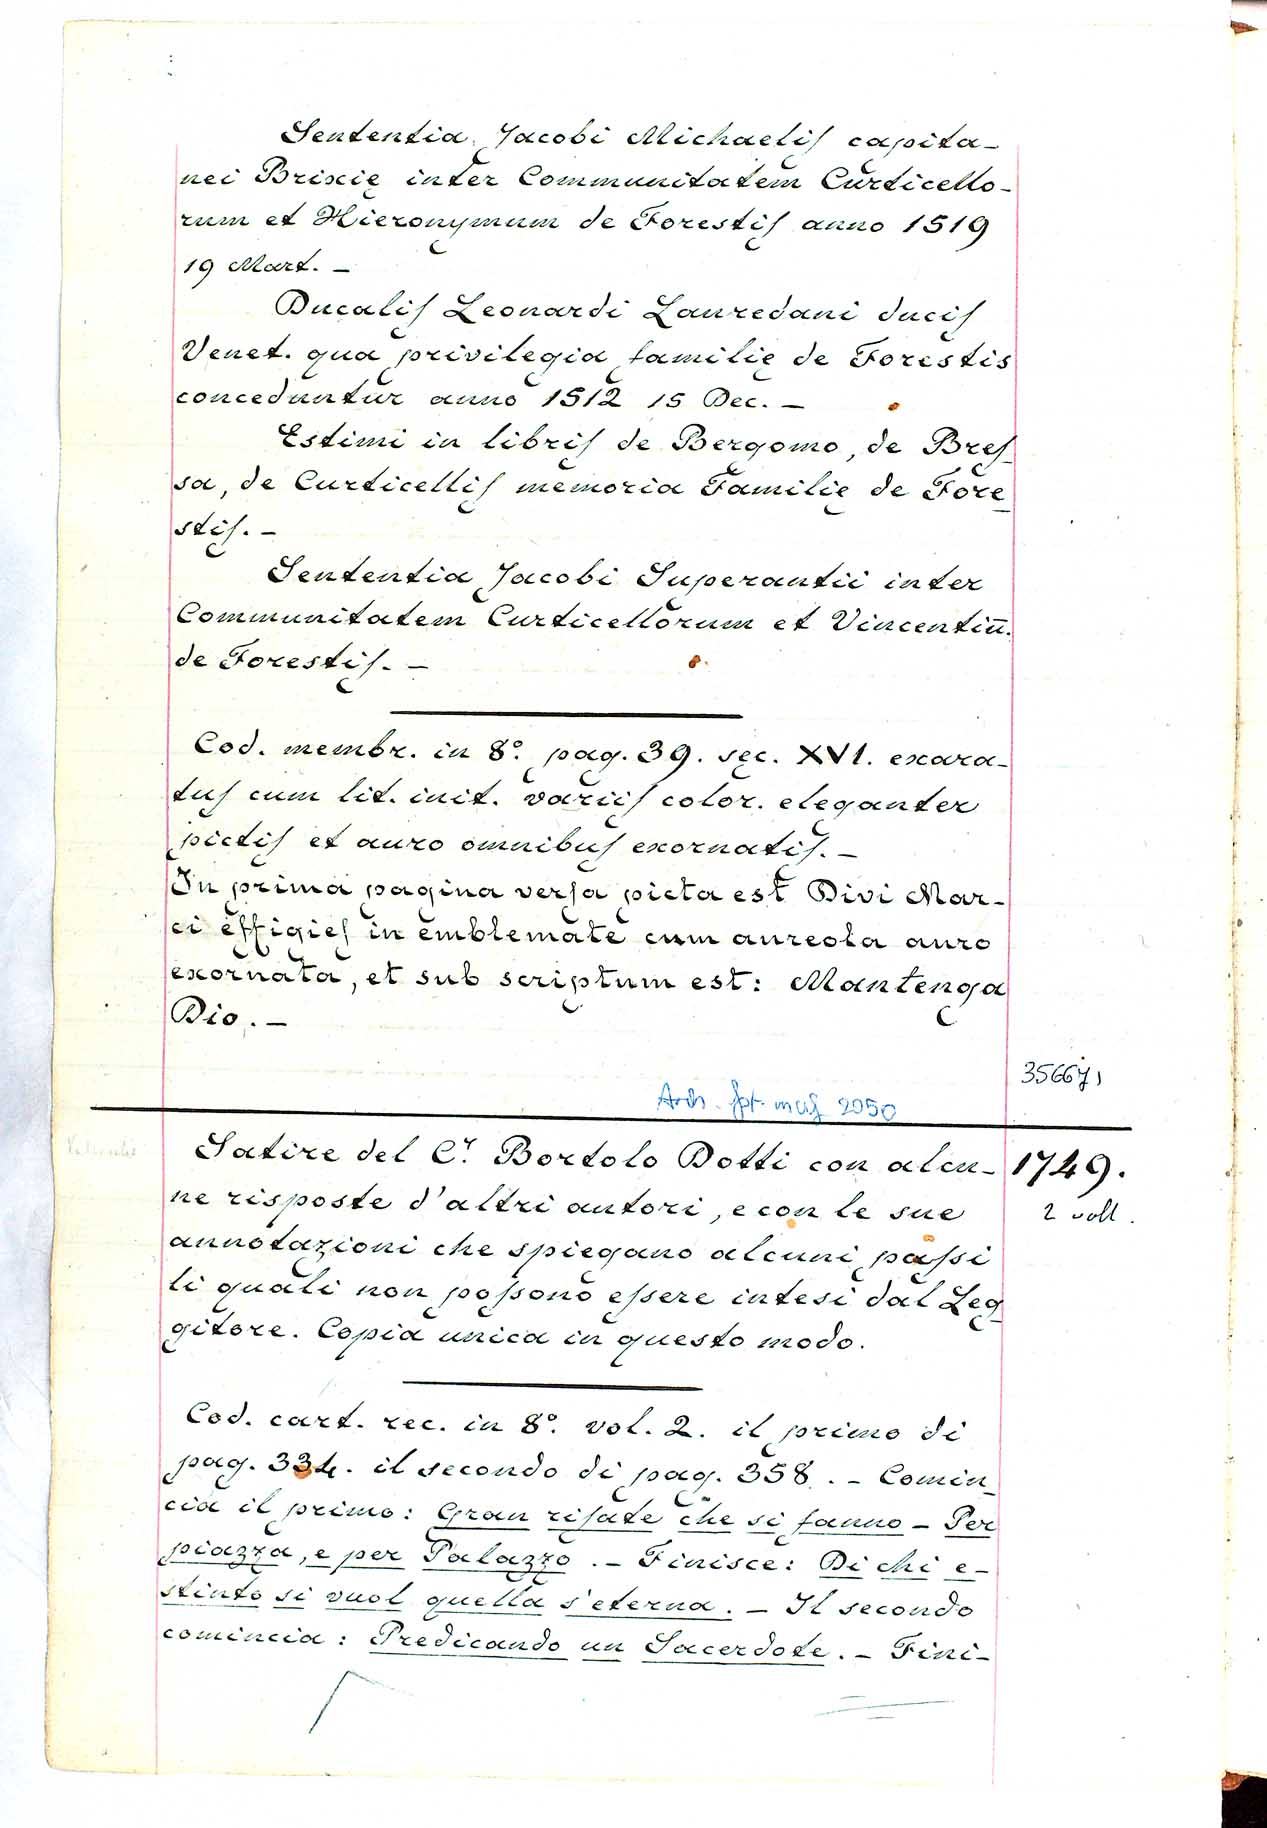 Sententia Jacobi Michaelis capita-
nei Brixię inter Communitatem Curticello-
rum et Hieronymum de Forestis anno 1519
19 Mart. -
Ducalis Leonardi Lauredani ducis
Venet. qua privilegia familię de Forestis
conceduntur anno 1512 15 Dec. -
Estimi in libris de Bergomo, de Bres-
sa, de Curticellis memoria Familię de Fore-
stis. -
Sententia Jacobi Superantii inter
Communitatem Curticellorum et Vincentiū.
de Forestis. -
Cod. membr. in 8.° pag. 39. sęc. XVI. exara-
tus cum lit. init. variis color. eleganter
pictis et auro omnibus exornatis. -
In prima pagina versa picta est Divi Mar-
ci effigies in emblemate cum aureola auro
exornata, et sub scriptum est: Mantenga
Dio. -
35667)
Arch. spt. mag 2050
Satire del C.r Bortolo Dotti con alcu-
1749.
ne risposte d'altri autori, e con le sue
2 voll.
annotazioni che spiegano alcuni passi
li quali non possono essere intesi dal Leg-
gitore. Copia unica in questo modo.
Cod. cart. rec. in 8.° vol. 2. il primo di
pag. 334. il secondo di pag. 358. - Comin-
cia il primo: Gran risate che si fanno - Per
piazza, e per Palazzo. - Finisce: Di chi e-
stinto si vuol quella s'eterna. - Il secondo
comincia: Predicando un Sacerdote. - Fini-